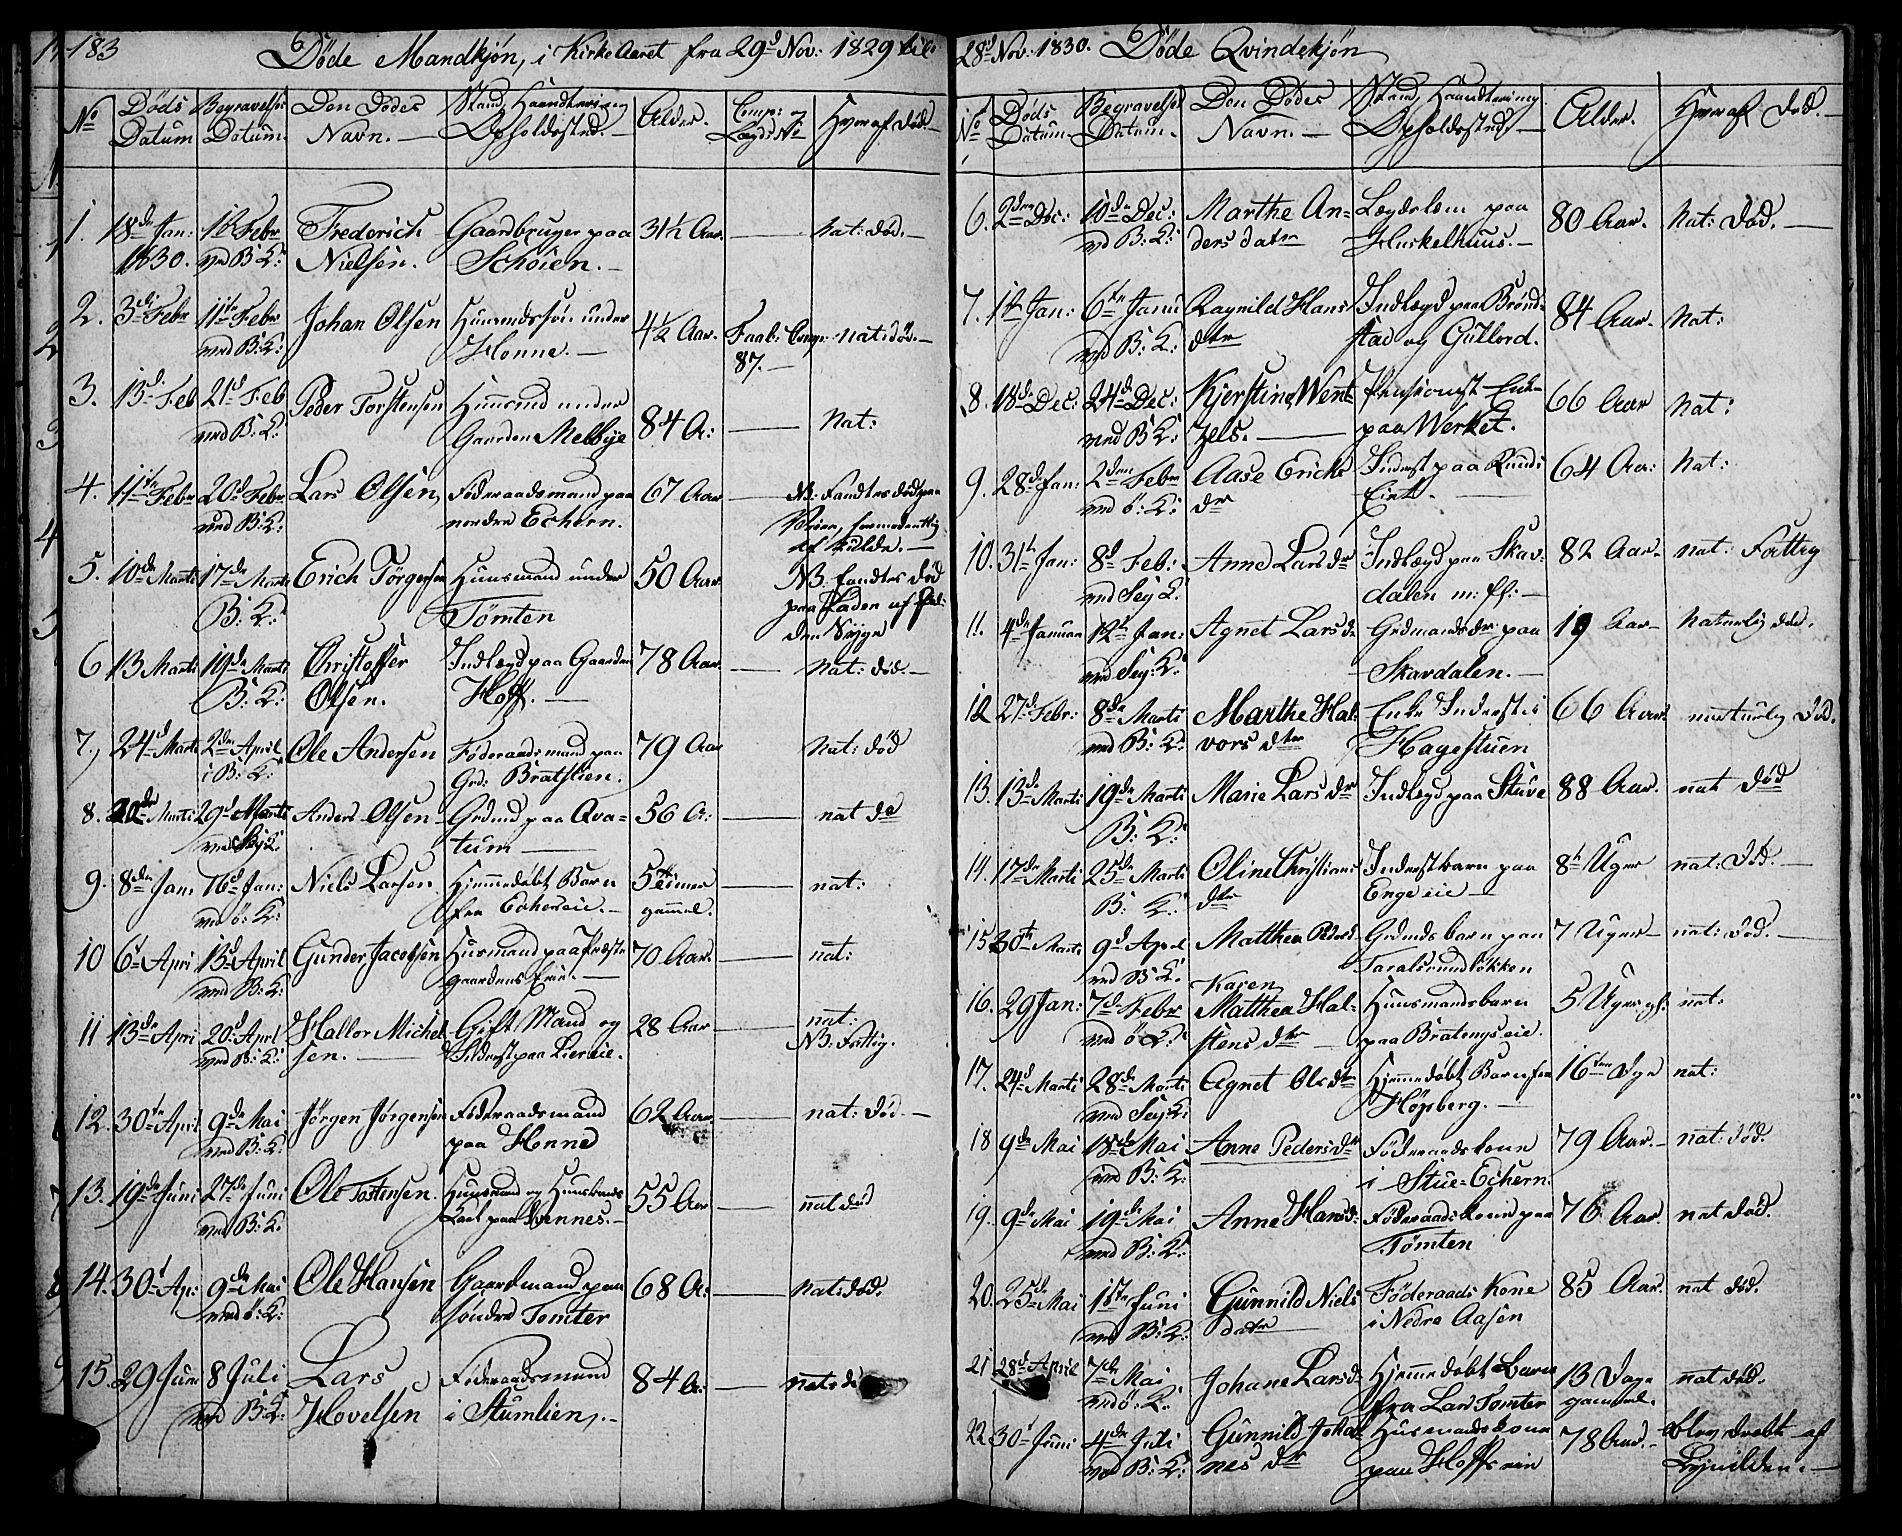 183
Døde Mandkjøn, i Kirke Aaret fra 29d Nov: 1829 til
No
Døds Datum
Begravelses Datum.
Den Dødes Navn.
Stand, Haandtering Opholdssted.
Alder.
Comp: og Lægds No
Hvoraf død.
1. 18de Jan: 1830. Febr ved B: K: Frederich Nielsen. Gaardbruger paa Schøien. 31½ Aar. nat: død.
2. 3di Febr 11te Febr ved B: K: Johan Olsen Huusmandssøn under Honne. 4½ Aar. Comp: 87. nat: død.
3. 13d Feb 21d Feb ved B: K: Peder Torstensen Huusmd under Gaarden Melbye 84 A: nat:
4. 11te Febr 20d Febr ved B: K: Lars Olsen, Føderaadsmand paa nordre Echern. 67 Aar NB. Fandtes død paa Veien, formodentlig af kulde.
5. 10de Marti 17de Marti B: K: Erich Jørgensen Huusmand under Tømten 50 Aar. NB. fandtes død paa Laden
6 13 Marti 19de Marti B: K: Christoffer Olsen. Indlægd paa Gaarden Hoff. 78 Aar. nat: død.
7. 24d Marti 2den April i B: K: Ole Andersen Føderaadsmand paa Grd: Bratlien. 79 Aar nat: død
8. 20de Marti 29d Marti Anders Olsen Grdmd paa Qvatum 56 A: nat dd
9. 8de Jan. 16d Jan: ved ö: K: Niels Larsen Hjemmedøbt Barn fra Echerseie. 5 gammel. nat:
10 6t April 13d April ved B: K: Gunder Jacobsen Huusmand paa Præstegaardens Eie. 70 Aar. nat:
11 13de April 20d Aprl ved B: K: Hallor Michelsen. Gift Mand og Inderst paa Liereie. 28 Aar nat: NB: Fattig.
12. 30te April 9de Mai ved B: K: Jörgen Jörgensen Føderaadsmand paa Honne 62 Aar. nat: død.
13. 19de Juni 27de Juni ved B: K: Ole Tostensen. Huusmand og 55 Aar nat død
14. 30t Apr: 9de Mai ved ö: K: Ole Hansen Gaardmand paa søndre Tomter 68 A: nat: død.
15. 29 Juni 8 Juli ved B: K: Lars Hovelsen Føderaadsmand i Stumlien. 84 A: nat: d
28d Nov: 1830. Døde Qvindekjön
No
Døds Datum.
Begravelses Datum.
Den Dødes Navn.
Stand, Haandtering Opholdssted.
Alder.
Hvoraf død.
6. 2den Dec: 10de Dec: ved B: K: Marthe Andersdatr Lægdslem paa Huskelhuus. 80 Aar. nat: død.
7. 1te Jan: 6te Janu ved B: K: Ragnild Hansdtr Indlægd paa Brøndstad og Gullord. 84 Aar. nat:
8. 18de Dec: 24de Dec: ved B: K: Kjerstine Wentzels. Pensionist Enke paa Werket. 66 Aar nat:
9. 28d Jan: 2den Febr ved ö: K: Aase Erichsdr Inderst paa 64 Aar: nat:
10. 31te Jan: 8d Feb: ved Sey K: Anne Larsdr Indlægd paa Skavdalen m: fl: 82 Aar. nat: Fattig
11. 4de Januar 12t Jan: ved Sey: K: Agnet Larsdr Grdmandsdr paa Skavdalen. 19 Aar. naturlig død.
12 27d Febr: 8de Marti ved B: K: Marthe Halvorsdtr Enke Inderst i Hagestuen 66 Aar naturlig død.
13. 13de Marti 19de Marti B: K: Marie Larsdr Indlægd paa Stuve 88 Aar. nat død
14. 17de Marti 25de Marti B: K: Oline Christiansdtr Inderstbarn paa Enge eie 8te Uger nat: død.
15 30te Marti 9d April ved B: K: Matthea Grdmdsbarn paa Taralsrundløkken 7 Uger nat: død.
16. 29 Jan: 7de Febr ved ö K: Karen Matthea Halstensdtr Huusmandsbarn paa Bratengseie. 5 Uger gl. nat:
17. 24d Marti 28de Marti ved Sey: K: Agnet Olsdtr Hjemmedøbt Barn fra Höysberg. 16ten Dge nat:
18 9de Mai 18de Mai ved B: K: Anne Pedersdr Føderaadskone i Stue-Echern. 79 Aar. nat: død.
19. 9de Mai 19de Mai ved B: K: Anne Hansd: Føderaadskone paa Tømten 76 Aar. nat død.
20. 25de Mai 1ste Juni ved B: K: Gunnild Nielsdatr Föderaads Kone i Nedre Aasen 85 Aar. nat død.
21 28d April 7de Mai ved ö. K. Johane Larsd: Hjemmedøbt Barn fra Lars Tomter 13 Dage gammel. nat død.
22 30t Juni 4de Juli ved B: K: Gunnild Johannesdr Huusmandskone paa Hoffs eie 78 Aar. blev dræbt af Lynilden.